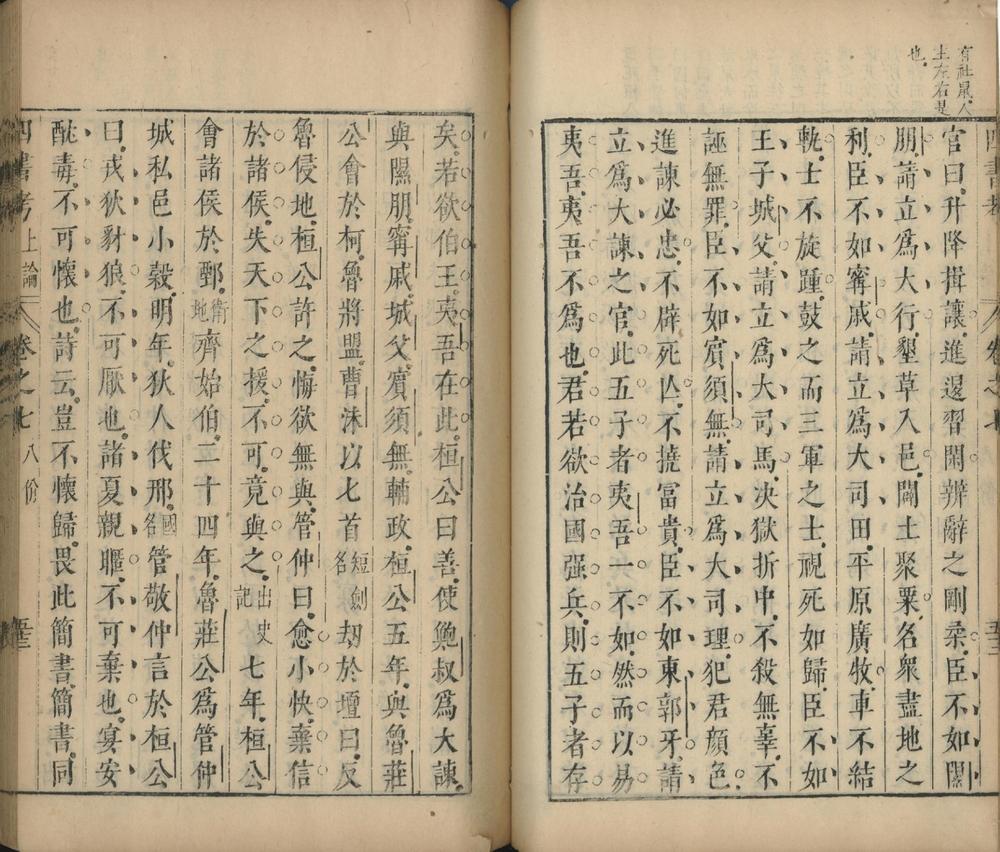 有社鼠人
主左右是
也
官曰升降揖讓進退習閑辨辭之剛柔臣不如隰
朋請立爲大行墾草入邑闢土聚粟名衆盡地之
利臣不如甯戚請立爲大司田平原廣牧車不結
軌士不旋踵鼓之而三軍之士視死如歸臣不如
王子城父請立爲大司馬決獄折中不殺無辜不
誣無罪臣不如賓須無請立爲大司理犯君顔色
進諫必忠不辟死亾不撓富貴臣不如東郭牙請
立爲大諫之官此五子者夷吾一不如然而以易
夷吾夷吾不爲也君若欲治國强兵則五子者存
矣若欲伯王夷吾在此桓公曰善使鮑叔爲大諫
與隰朋甯戚城父賓須無輔政桓公五年與魯莊
公會於柯魯將盟曹沬以七首短劍名劫於壇曰反
魯侵地桓公許之悔欲無與管仲曰愈小快棄信
於諸侯失天下之援不可竟與之出史記七年桓公
會諸侯於鄄衛地齊始伯二十四年魯莊公爲管仲
城私邑小穀明年狄人伐邢國名管敬仲言於桓公
曰戎狄豺狼不可厭也諸夏親暱不可棄也宴安
酖毒不可懷也詩云豈不懷歸畏此簡書簡書同
四書考 上論 卷之七 八佾